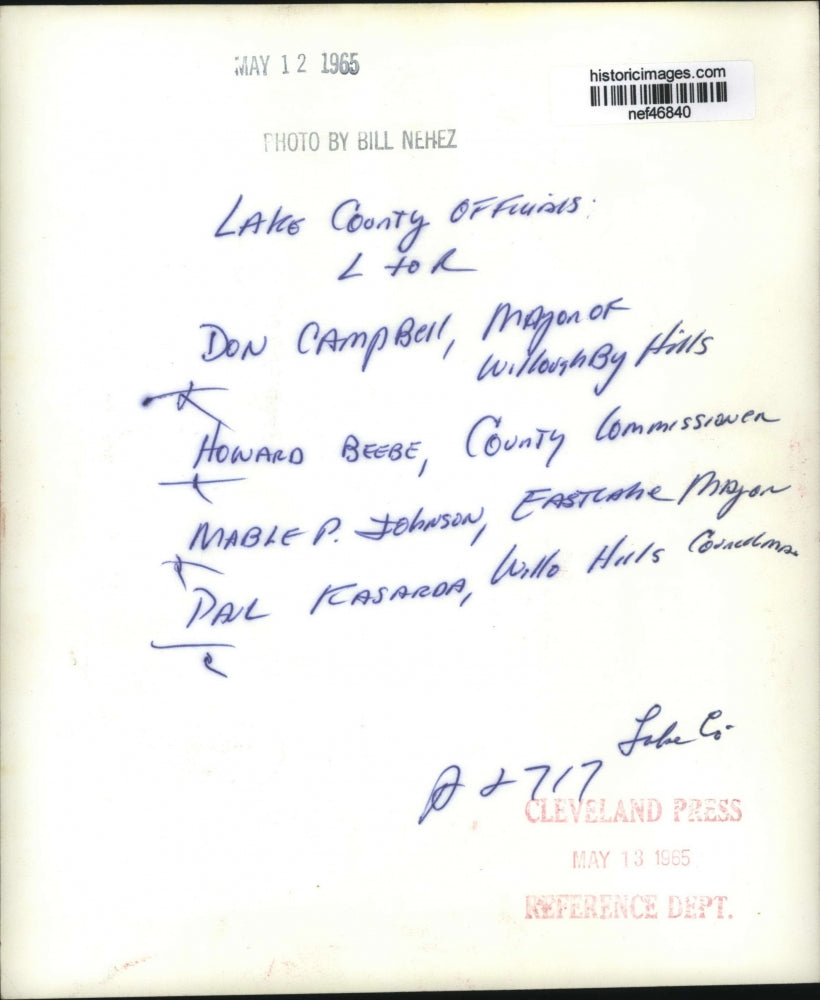 MAY 12 1965
historicimages.com
nef46840
PHOTO BY BILL NEHEZ
LAKE County OFFICIALS:
L to R
DON CAMPBell, Mayor OF
WilloughBy Hills
HOWARD BEEBE, County Commissioner
MABLE P. JOHNSON, EASTLAKE Mayor
PAUL KASARDA, Willo Hills Councilman
Lake Co.
2717
CLEVELAND PRESS
MAY 13 1965
REFERENCE DEPT.